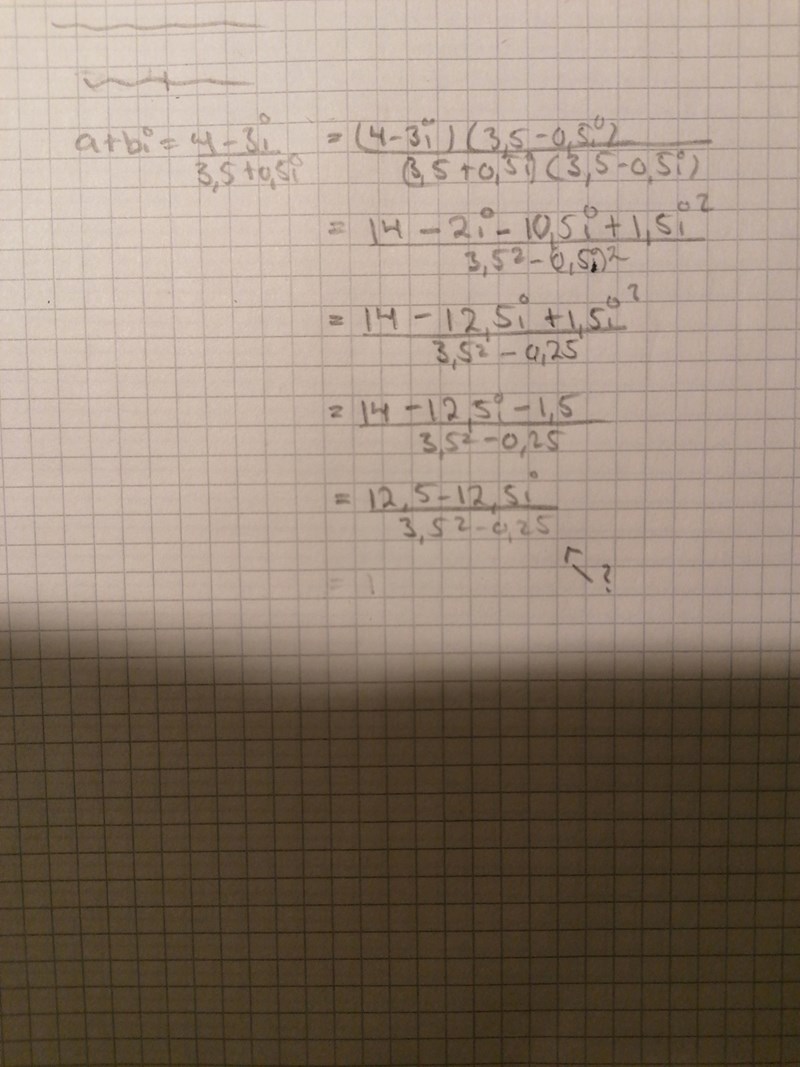 a+bi = 4-3i / 3,5+0,5i = (4-3i)(3,5-0,5i) / (3,5+0,5i)(3,5-0,5i)
= 14-2i-10,5i+1,5i² / 3,5²-0,5i)²
= 14-12,5i+1,5i² / 3,5²-0,25
= 14-12,5i-1,5 / 3,5²-0,25
= 12,5-12,5i / 3,5²-0,25
?